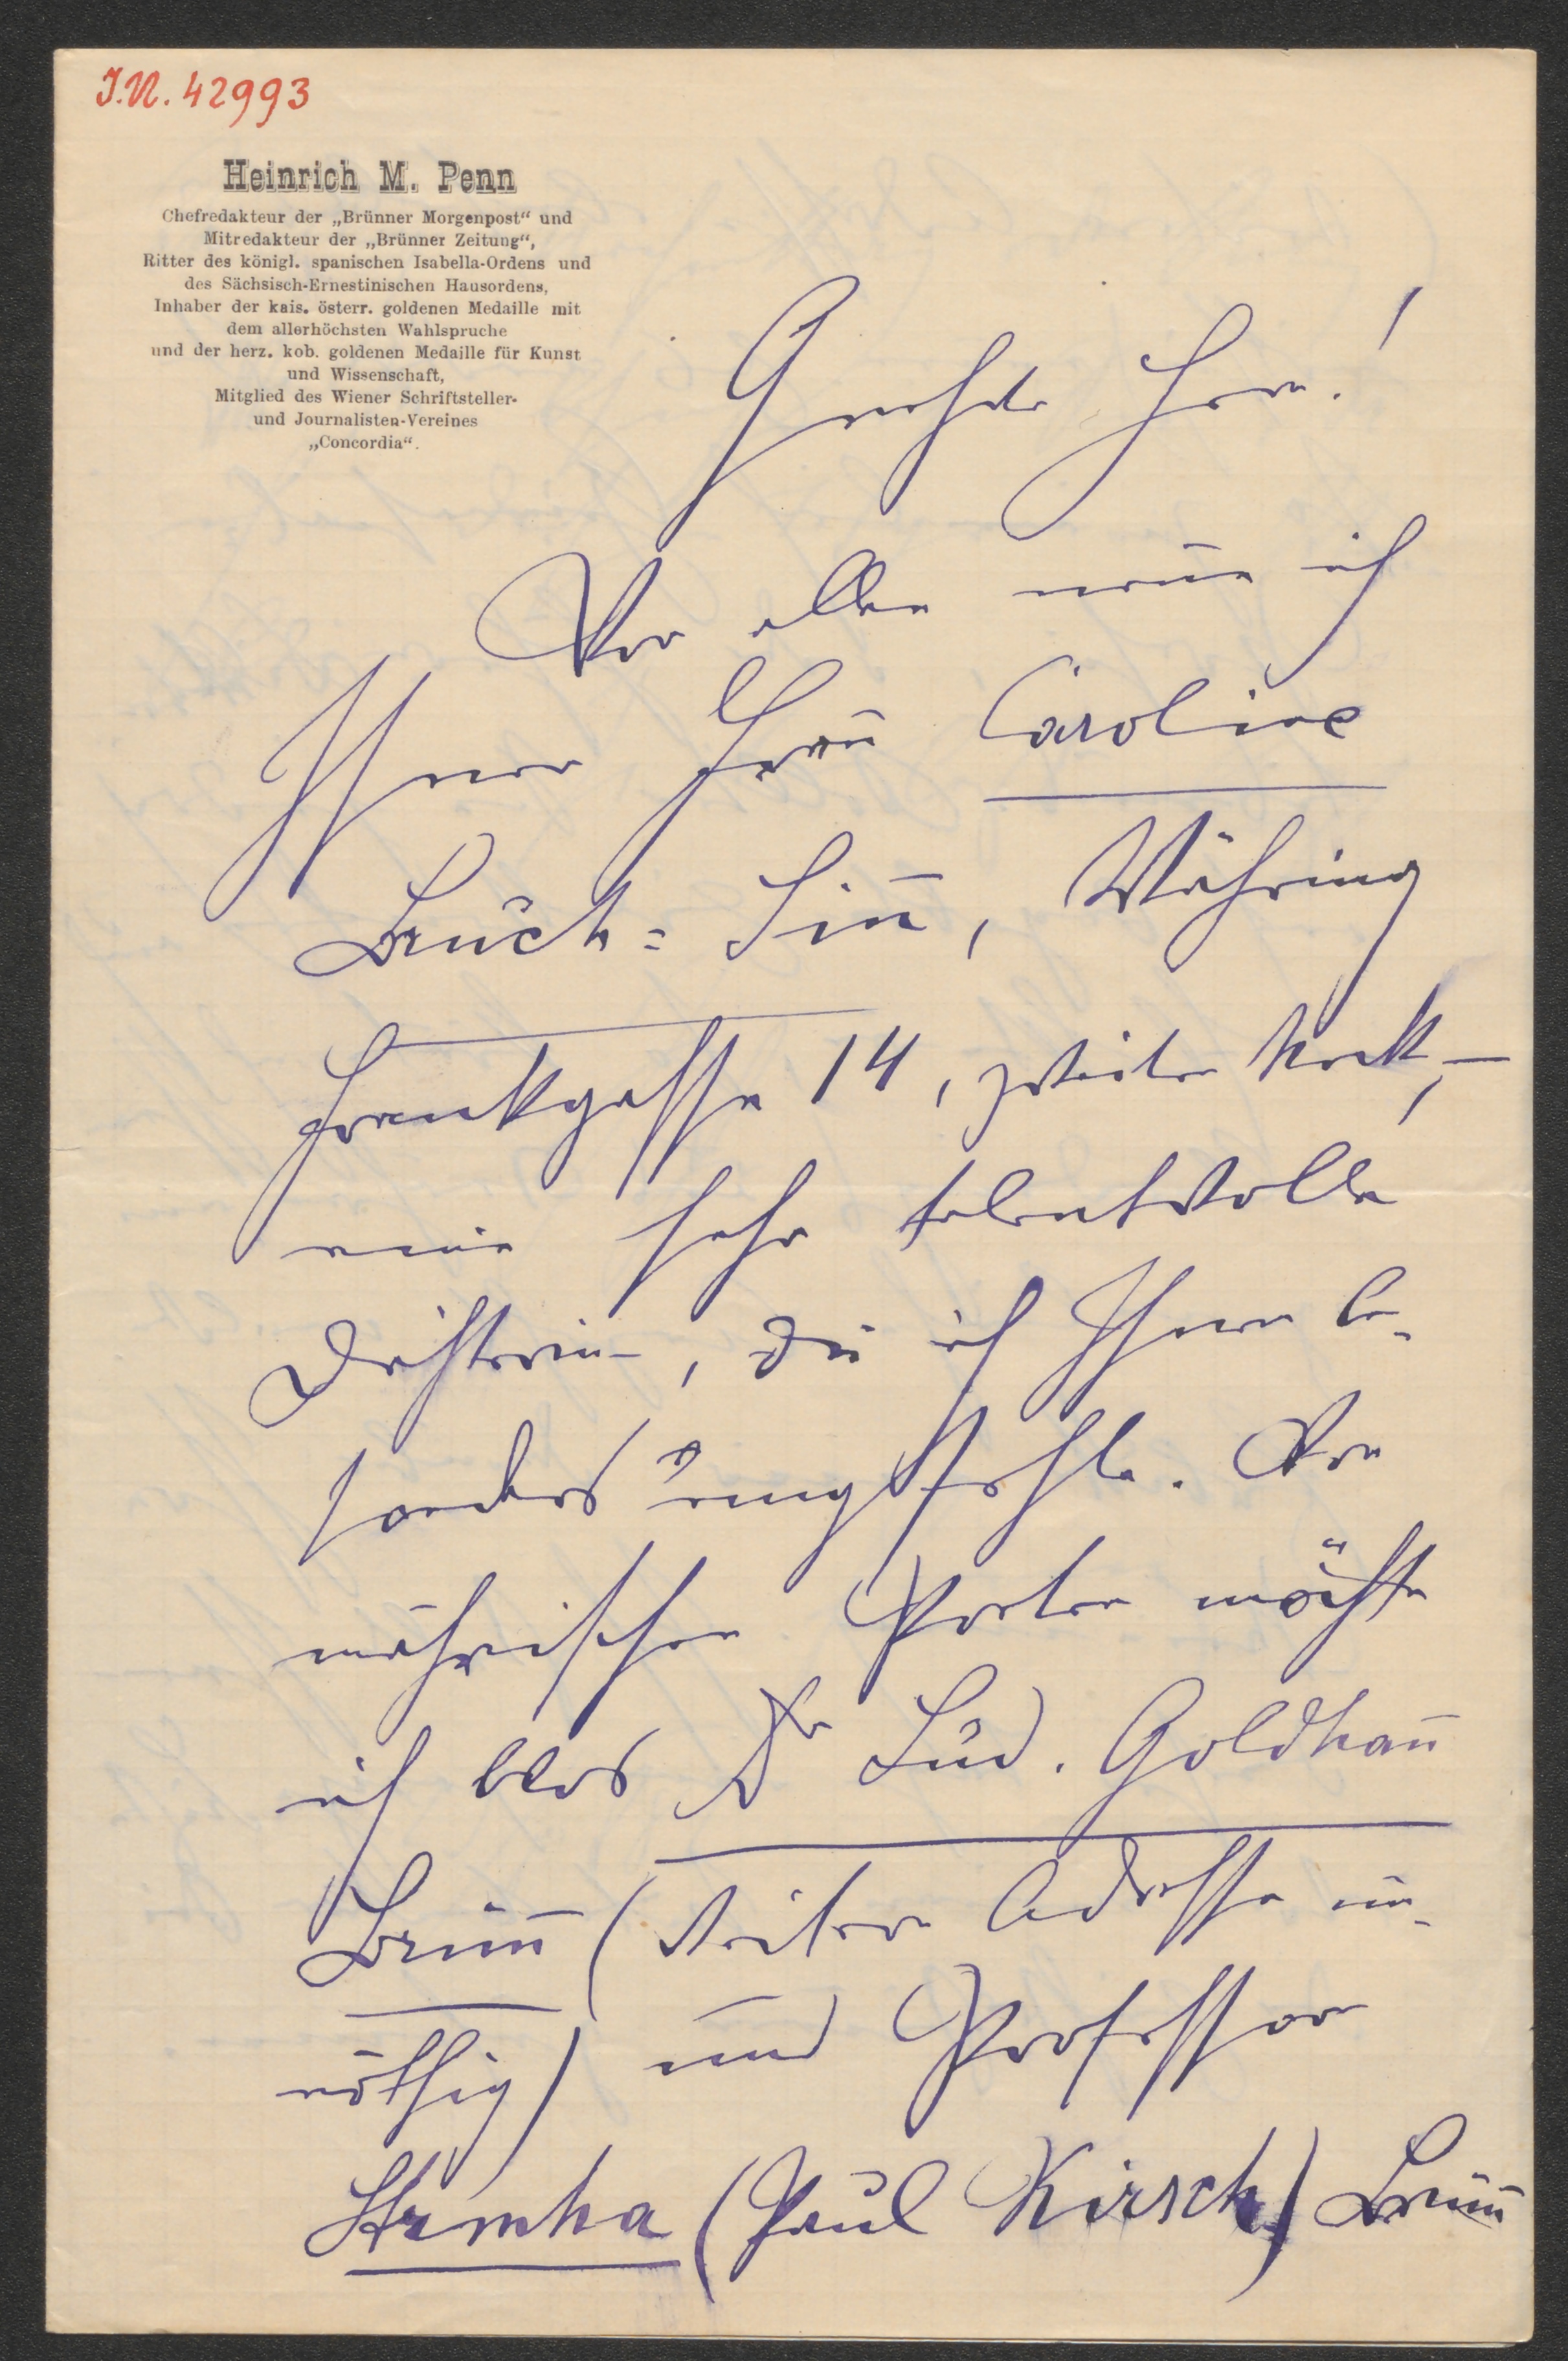 I.N. 42993
Heinrich M. Penn
Chefredakteur der „Brünner Morgenpost“ und
Mitredakteur der „Brünner Zeitung“,
Ritter des königl. spanischen Isabella-Ordens und
des Sächsisch-Ernestinischen Hausordens,
Inhaber der kais. österr. goldenen Medaille mit
dem allerhöchsten Wahlspruche
und der herz. kob. goldenen Medaille für Kunst
und Wissenschaft,
Mitglied des Wiener Schriftsteller-
und Journalisten-Vereines
„Concordia“.
Geehrter Herr!
Vor allen nenne ich
Ihnen Frau Caroline
Bruch=Sinn, Währing
Frankgasse 14, zweiter Stock,—
eine sehr talentvolle
Dichterin, die ich Ihnen be-
sonders empfehle. Von
mährischen Poeten möchte
ich blos Dr Lud. Goldhann
Brünn (weitere Adresse un-
nöthig) und Professor
(Paul Kirsch) Brünn